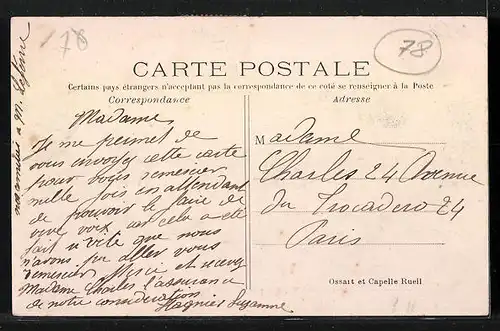 178
78
CARTE POSTALE
Certains pays étrangers n'acceptant pas la correspondance de ce coté se renseigner à la Poste
Correspondance
Adresse
nos amitiés a Mr. Lejeune
Madame
Je me permet de
vous envoyez cette carte
pour vous remercier
mille fois en attendant
de pouvoir le faire de
vive voix car cela a été
fait si vite que nous
n'avons pu aller vous
remercier Merci et recevez
Madame Charles l'assurance
de notre considération
Magnier Suzanne
Madame
Charles 24 Avenue
du Trocadero 24
Paris
Ossart et Capelle Ruell